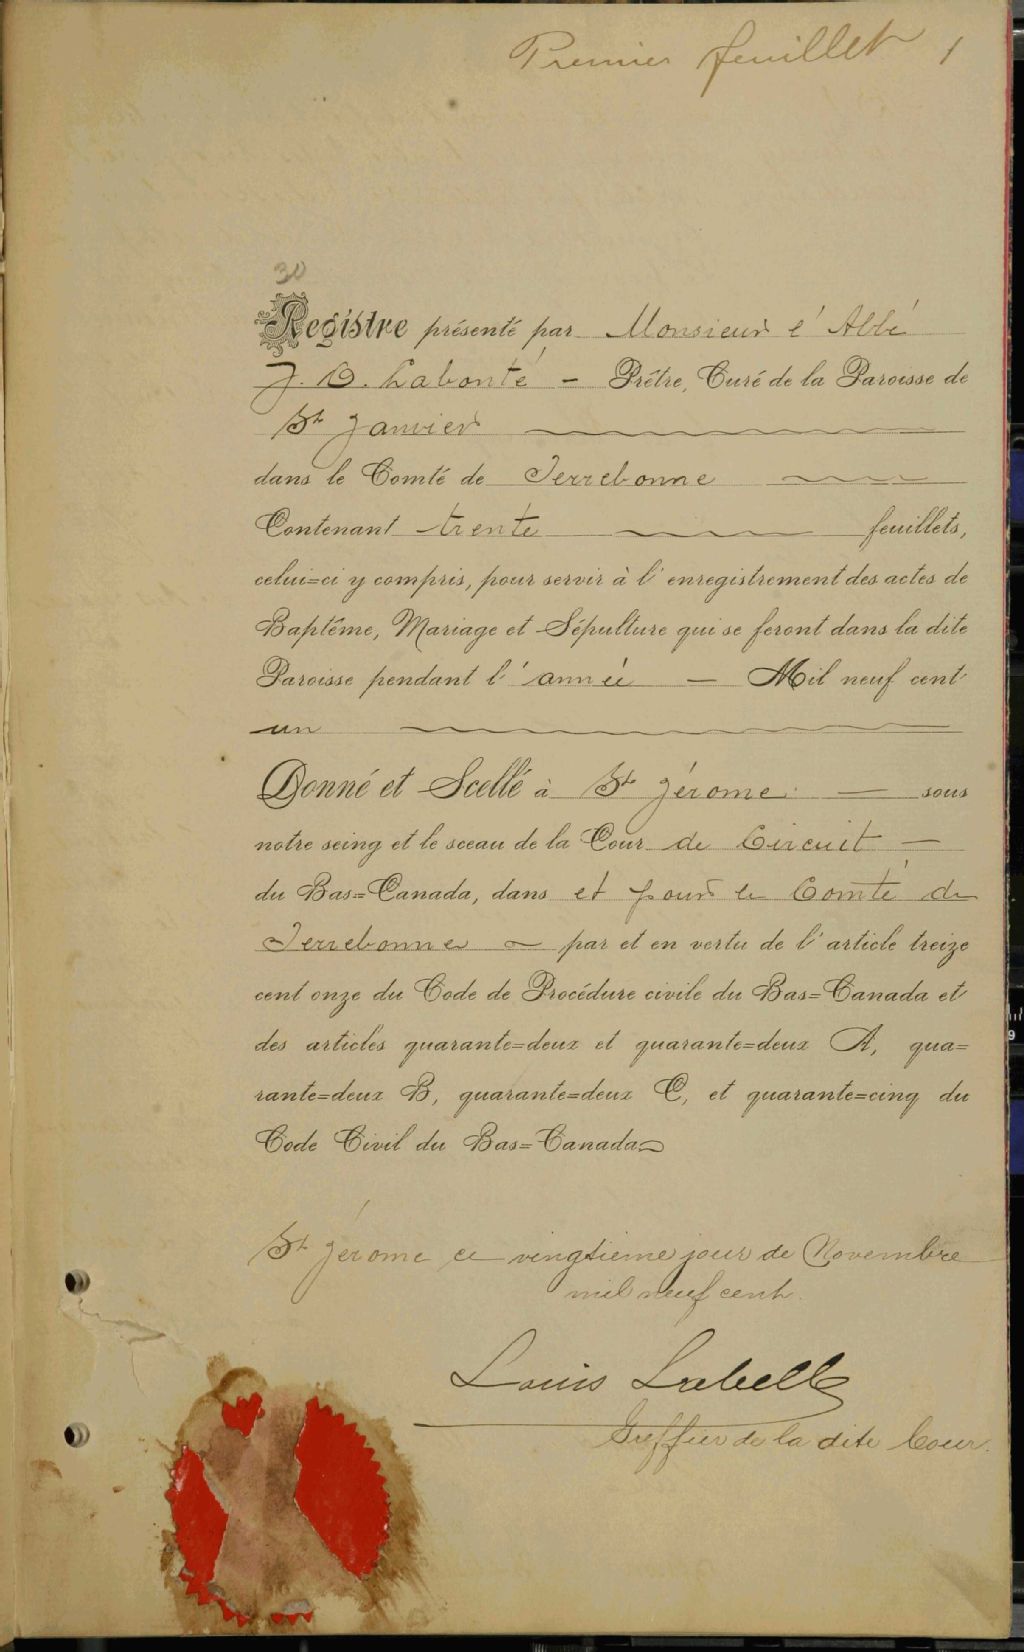 Premier feuillet 1
30
Registre présenté par Monsieur l'Abbé
J. O. Labonté – Prêtre, Curé de la Paroisse de
St Janvier
dans le Comté de Terrebonne
Contenant trente feuillets,
celui=ci y compris, pour servir à l'enregistrement des actes de
Baptême, Mariage et Sépulture qui se feront dans la dite
Paroisse pendant l'année – Mil neuf cent
un
Donné et Scellé à St Jérome – sous
notre seing et le sceau de la Cour de Circuit –
du Bas=Canada, dans et pour le Comté de
Terrebonne – par et en vertu de l'article treize
cent onze du Code de Procédure civile du Bas=Canada et
des articles quarante=deux et quarante=deux A, qua=
rante=deux B, quarante=deux C, et quarante=cinq du
Code Civil du Bas=Canada
St Jérome ce vingtième jour de Novembre
mil neuf cent.
Louis Labelle
Greffier de la dite Cour.
9